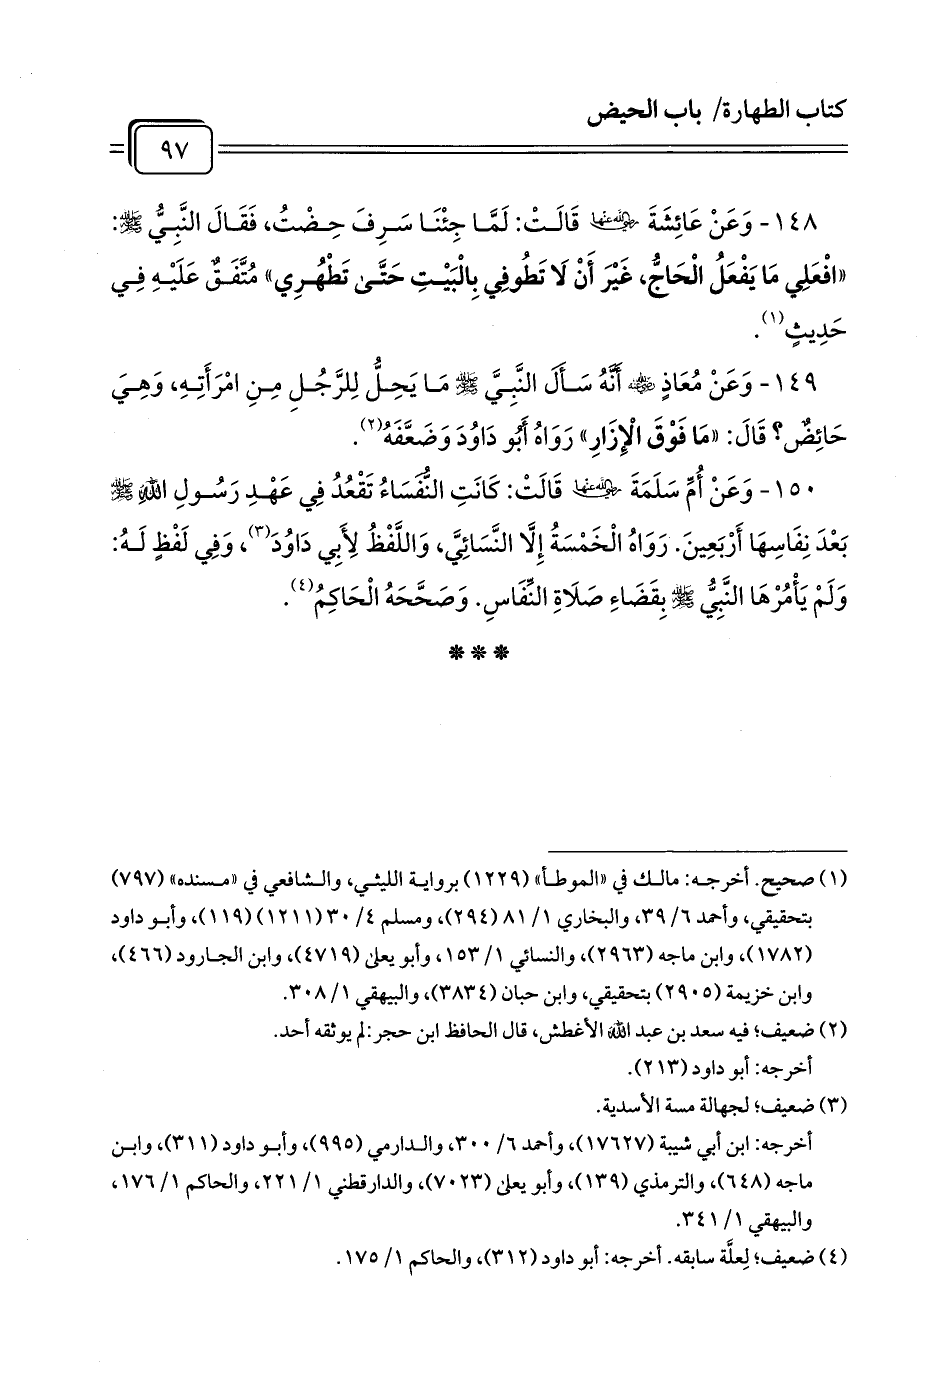 كتاب الطهارة/ باب الحيض
٩٧
١٤٨- وَعَنْ عَائِشَةَ رضي الله عنها قَالَتْ: لَمَّا جِئْنَا سَرِفَ حِضْتُ، فَقَالَ النَّبِيُّ ﷺ:
«افْعَلِي مَا يَفْعَلُ الْحَاجُّ، غَيْرَ أَنْ لَا تَطُوفِي بِالْبَيْتِ حَتَّى تَطْهُرِي» مُتَّفَقٌ عَلَيْهِ فِي
حَدِيثٍ(١).
١٤٩- وَعَنْ مُعَاذٍ رضي الله عنه أَنَّهُ سَأَلَ النَّبِيَّ ﷺ مَا يَحِلُّ لِلرَّجُلِ مِنِ امْرَأَتِهِ، وَهِيَ
حَائِضٌ؟ قَالَ: «مَا فَوْقَ الْإِزَارِ» رَوَاهُ أَبُو دَاوُدَ وَضَعَّفَهُ(٢).
١٥٠- وَعَنْ أُمِّ سَلَمَةَ رضي الله عنها قَالَتْ: كَانَتِ النُّفَسَاءُ تَقْعُدُ فِي عَهْدِ رَسُولِ اللهِ ﷺ
بَعْدَ نِفَاسِهَا أَرْبَعِينَ. رَوَاهُ الْخَمْسَةُ إِلَّا النَّسَائِيَّ، وَاللَّفْظُ لِأَبِي دَاوُدَ(٣)، وَفِي لَفْظٍ لَهُ:
وَلَمْ يَأْمُرْهَا النَّبِيُّ ﷺ بِقَضَاءِ صَلَاةِ النِّفَاسِ. وَصَحَّحَهُ الْحَاكِمُ(٤).
* * *
(١) صحيح. أخرجه: مالك في «الموطأ» (١٢٢٩) برواية الليثي، والشافعي في «مسنده» (٧٩٧)
بتحقيقي، وأحمد ٦/ ٣٩، والبخاري ١/ ٨١ (٢٩٤)، ومسلم ٤/ ٣٠ (١٢١١) (١١٩)، وأبو داود
(١٧٨٢)، وابن ماجه (٢٩٦٣)، والنسائي ١/ ١٥٣، وأبو يعلى (٤٧١٩)، وابن الجارود (٤٦٦)،
وابن خزيمة (٢٩٠٥) بتحقيقي، وابن حبان (٣٨٣٤)، والبيهقي ١/ ٣٠٨.
(٢) ضعيف؛ فيه سعد بن عبد الله الأغطش، قال الحافظ ابن حجر: لم يوثقه أحد.
أخرجه: أبو داود (٢١٣).
(٣) ضعيف؛ لجهالة مسة الأسدية.
أخرجه: ابن أبي شيبة (١٧٦٢٧)، وأحمد ٦/ ٣٠٠، والدارمي (٩٩٥)، وأبو داود (٣١١)، وابن
ماجه (٦٤٨)، والترمذي (١٣٩)، وأبو يعلى (٧٠٢٣)، والدارقطني ١/ ٢٢١، والحاكم ١/ ١٧٦،
والبيهقي ١/ ٣٤١.
(٤) ضعيف؛ لِعلَّة سابقه. أخرجه: أبو داود (٣١٢)، والحاكم ١/ ١٧٥.